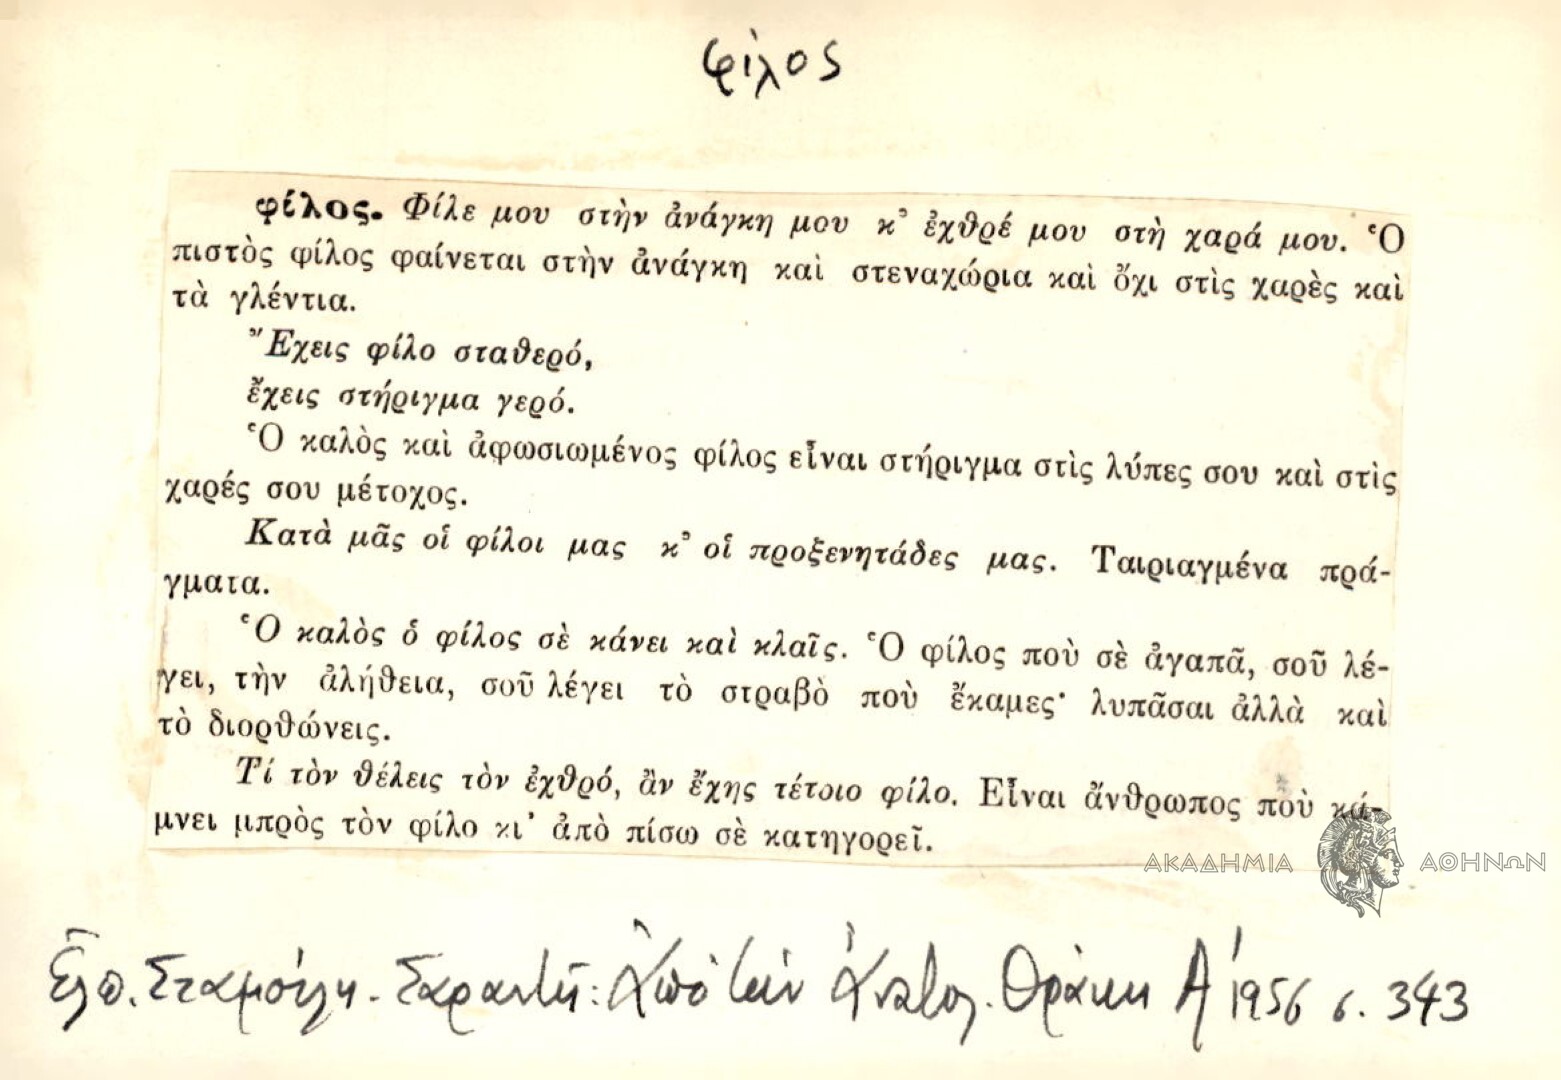 φίλος
φίλος. Φίλε μου στὴν ἀνάγκη μου κ᾿ ἐχθρέ μου στὴ χαρά μου. Ὁ
πιστὸς φίλος φαίνεται στὴν ἀνάγκη καὶ στεναχώρια καὶ ὄχι στὶς χαρὲς καὶ
τὰ γλέντια.
Ἔχεις φίλο σταθερό,
ἔχεις στήριγμα γερό.
Ὁ καλὸς καὶ ἀφωσιωμένος φίλος εἶναι στήριγμα στὶς λύπες σου καὶ στὶς
χαρές σου μέτοχος.
Κατὰ μᾶς οἱ φίλοι μας κ᾿ οἱ προξενητάδες μας. Ταιριαγμένα πρά-
γματα.
Ὁ καλὸς ὁ φίλος σὲ κάνει καὶ κλαῖς. Ὁ φίλος ποὺ σὲ ἀγαπᾶ, σοῦ λέ-
γει, τὴν ἀλήθεια, σοῦ λέγει τὸ στραβὸ ποὺ ἔκαμες· λυπᾶσαι ἀλλὰ καὶ
τὸ διορθώνεις.
Τί τὸν θέλεις τὸν ἐχθρό, ἂν ἔχης τέτοιο φίλο. Εἶναι ἄνθρωπος ποὺ κά-
μνει μπρὸς τὸν φίλο κι᾿ ἀπὸ πίσω σὲ κατηγορεῖ.
ΑΚΑΔΗΜΙΑ ΑΘΗΝΩΝ
Ἐλπ. Σταμούλη - Σαραντῆ: Ἀπὸ τὴν Ἀνατολ. Θράκη Α' 1956 σ. 343